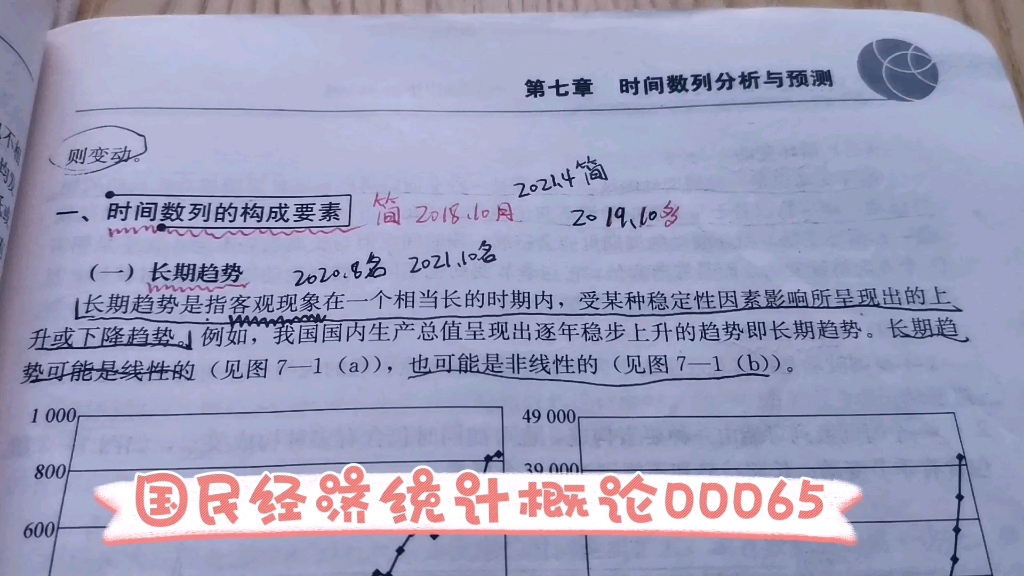 第七章 时间数列分析与预测
则变动。
2021.4简
一、时间数列的构成要素 简 2018.10月 2019.10名
(一)长期趋势 2020.8名 2021.10名
长期趋势是指客观现象在一个相当长的时期内，受某种稳定性因素影响所呈现出的上
升或下降趋势。例如，我国国内生产总值呈现出逐年稳步上升的趋势即长期趋势。长期趋
势可能是线性的（见图 7—1（a)），也可能是非线性的（见图 7—1（b)）。
1 000
49 000
800
39 000
600
国民经济统计概论00065